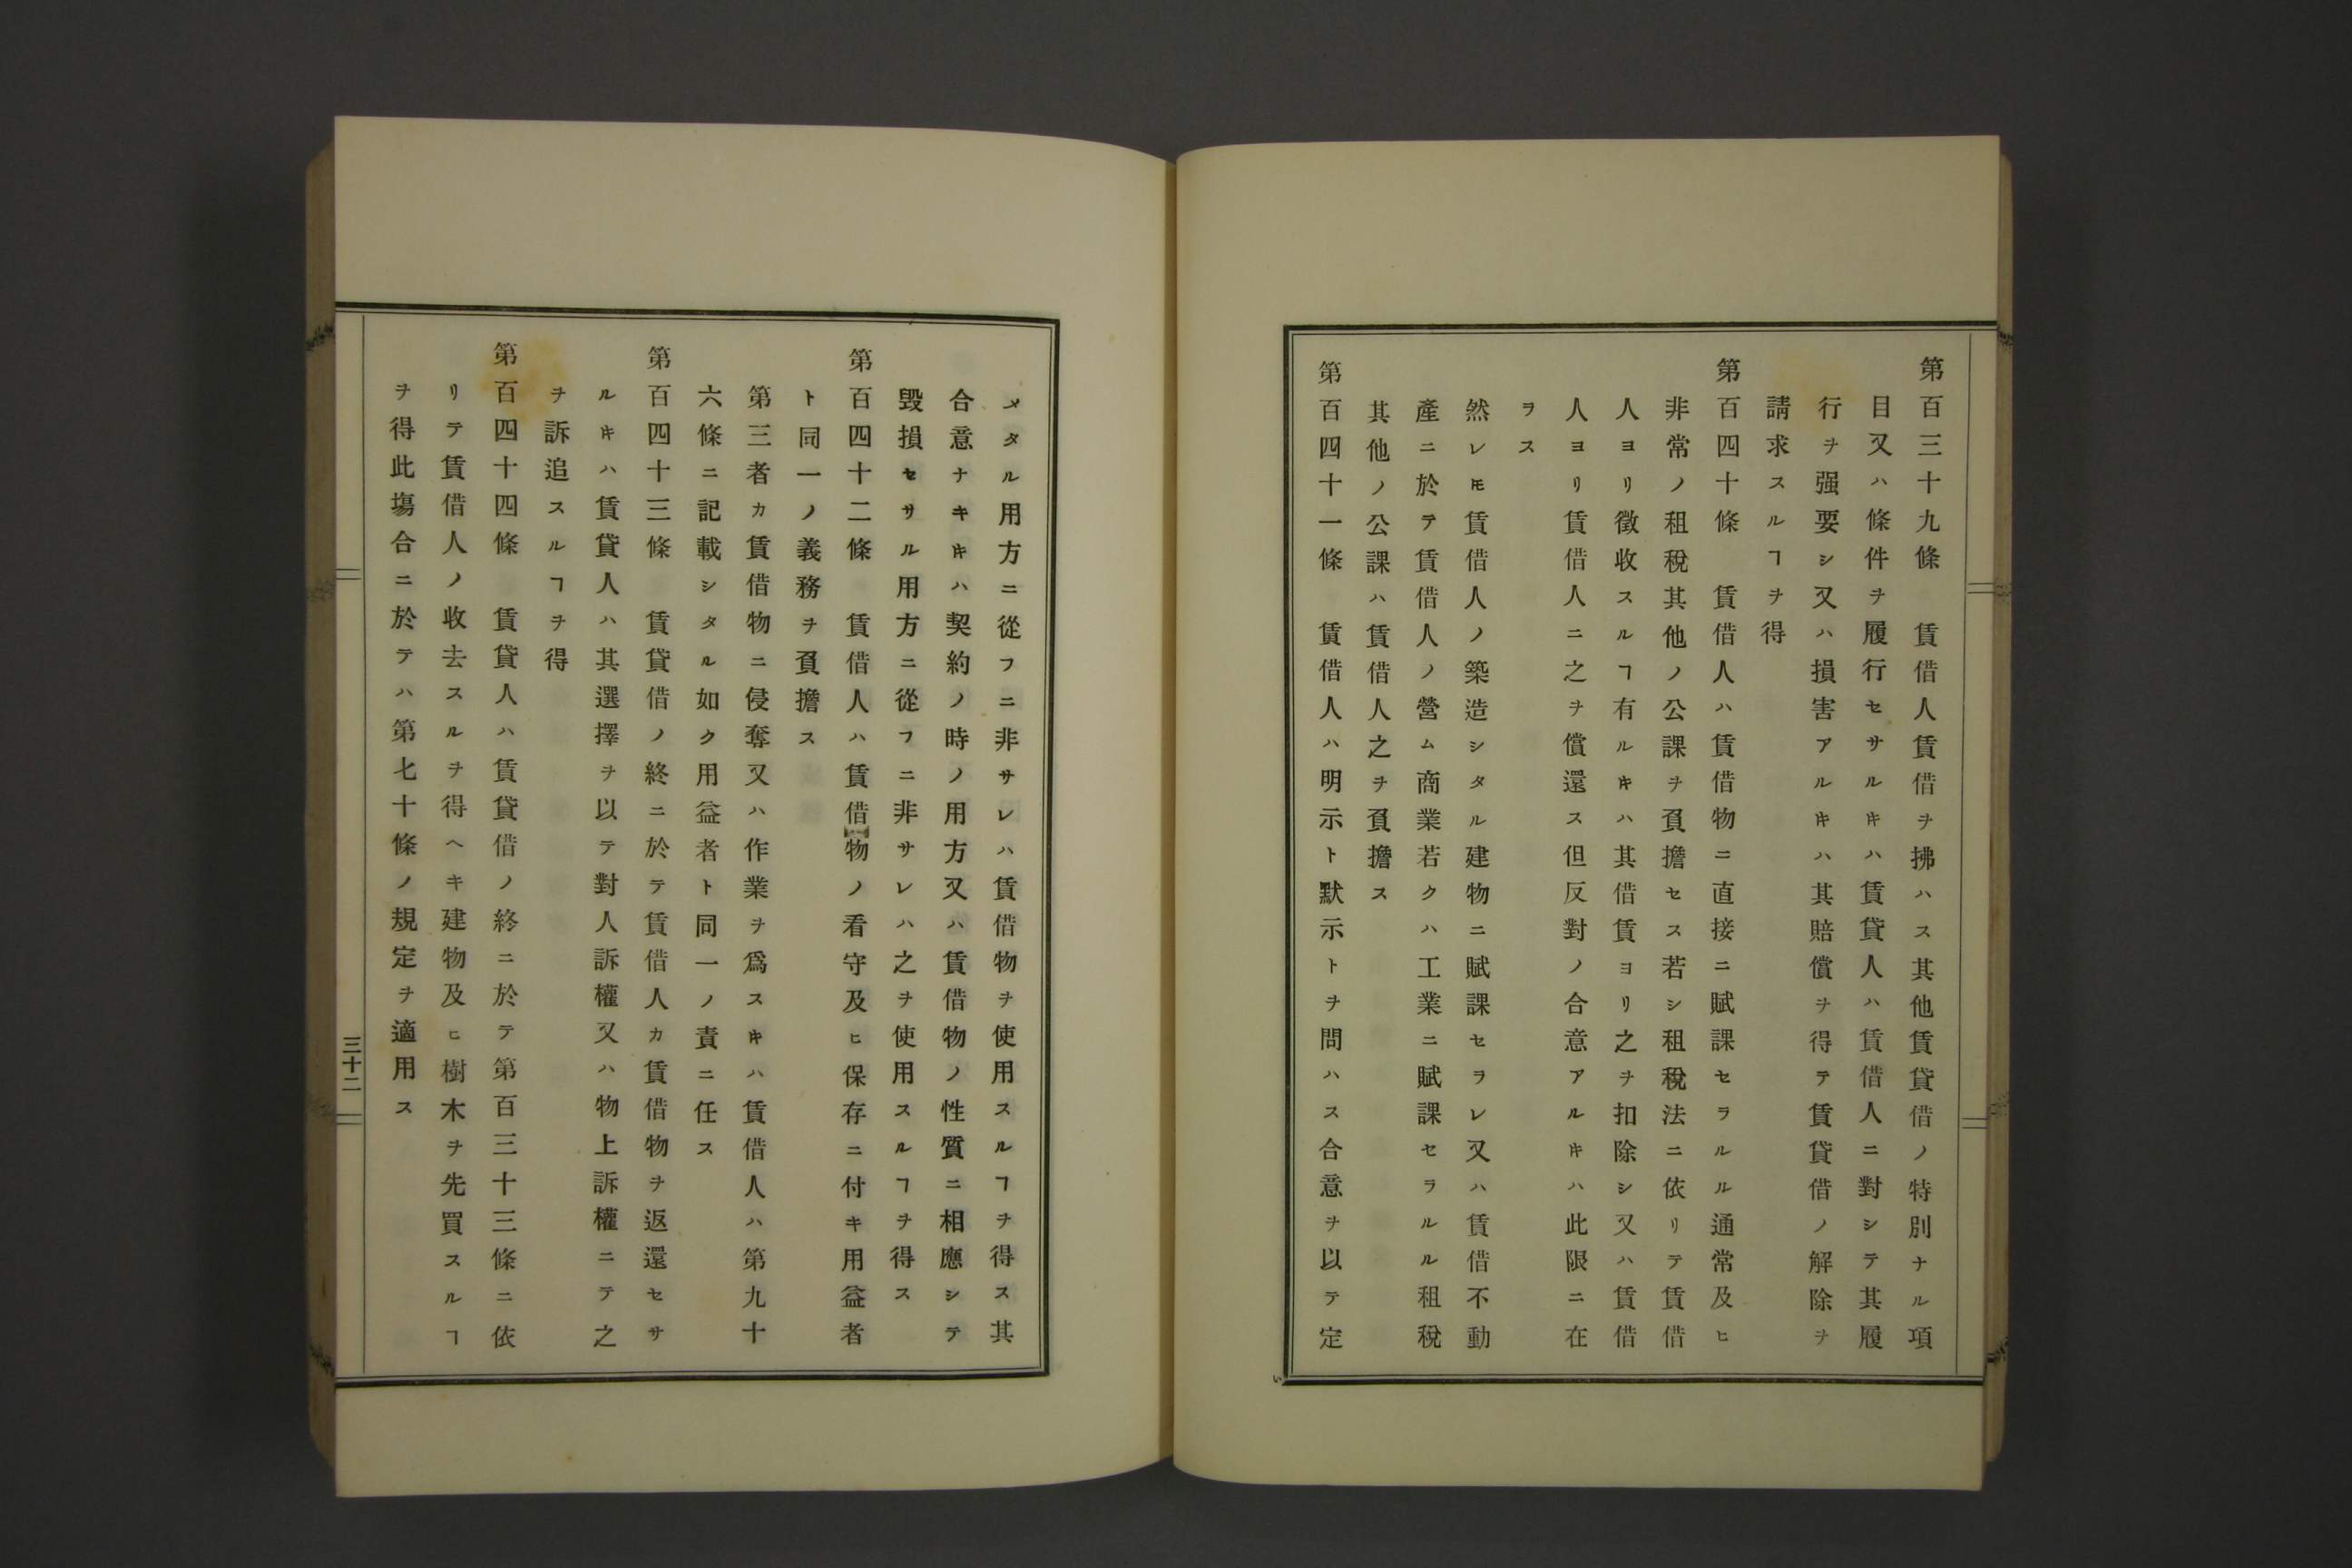 第百三十九條　賃借人賃借ヲ拂ハス其他賃貸借ノ特別ナル項
目又ハ條件ヲ履行セサルキハ賃貸人ハ賃借人ニ對シテ其履
行ヲ强要シ又ハ損害アルキハ其賠償ヲ得テ賃貸借ノ解除ヲ
請求スルヿヲ得
第百四十條　賃借人ハ賃借物ニ直接ニ賦課セラルル通常及ヒ
非常ノ租稅其他ノ公課ヲ負擔セス若シ租稅法ニ依リテ賃借
人ヨリ徵收スルヿ有ルキハ其借賃ヨリ之ヲ扣除シ又ハ賃借
人ヨリ賃借人ニ之ヲ償還ス但反對ノ合意アルキハ此限ニ在
ヲス
然レ𪜈賃借人ノ築造シタル建物ニ賦課セラレ又ハ賃借不動
產ニ於テ賃借人ノ營ム商業若クハ工業ニ賦課セラルル租稅
其他ノ公課ハ賃借人之ヲ負擔ス
第百四十一條　賃借人ハ明示ト默示トヲ問ハス合意ヲ以テ定
メタル用方ニ從フニ非サレハ賃借物ヲ使用スルヿヲ得ス其
合意ナキキハ契約ノ時ノ用方又ハ賃借物ノ性質ニ相應シテ
毀損セサル用方ニ從フニ非サレハ之ヲ使用スルヿヲ得ス
第百四十二條　賃借人ハ賃借物ノ看守及ヒ保存ニ付キ用益者
ト同一ノ義務ヲ負擔ス
第三者カ賃借物ニ侵奪又ハ作業ヲ爲スキハ賃借人ハ第九十
六條ニ記載シタル如ク用益者ト同一ノ責ニ任ス
第百四十三條　賃貸借ノ終ニ於テ賃借人カ賃借物ヲ返還セサ
ルキハ賃貸人ハ其選擇ヲ以テ對人訴權又ハ物上訴權ニテ之
ヲ訴追スルヿヲ得
第百四十四條　賃貸人ハ賃貸借ノ終ニ於テ第百三十三條ニ依
リテ賃借人ノ收去スルヲ得ヘキ建物及ヒ樹木ヲ先買スルヿ
ヲ得此塲合ニ於テハ第七十條ノ規定ヲ適用ス
三十二